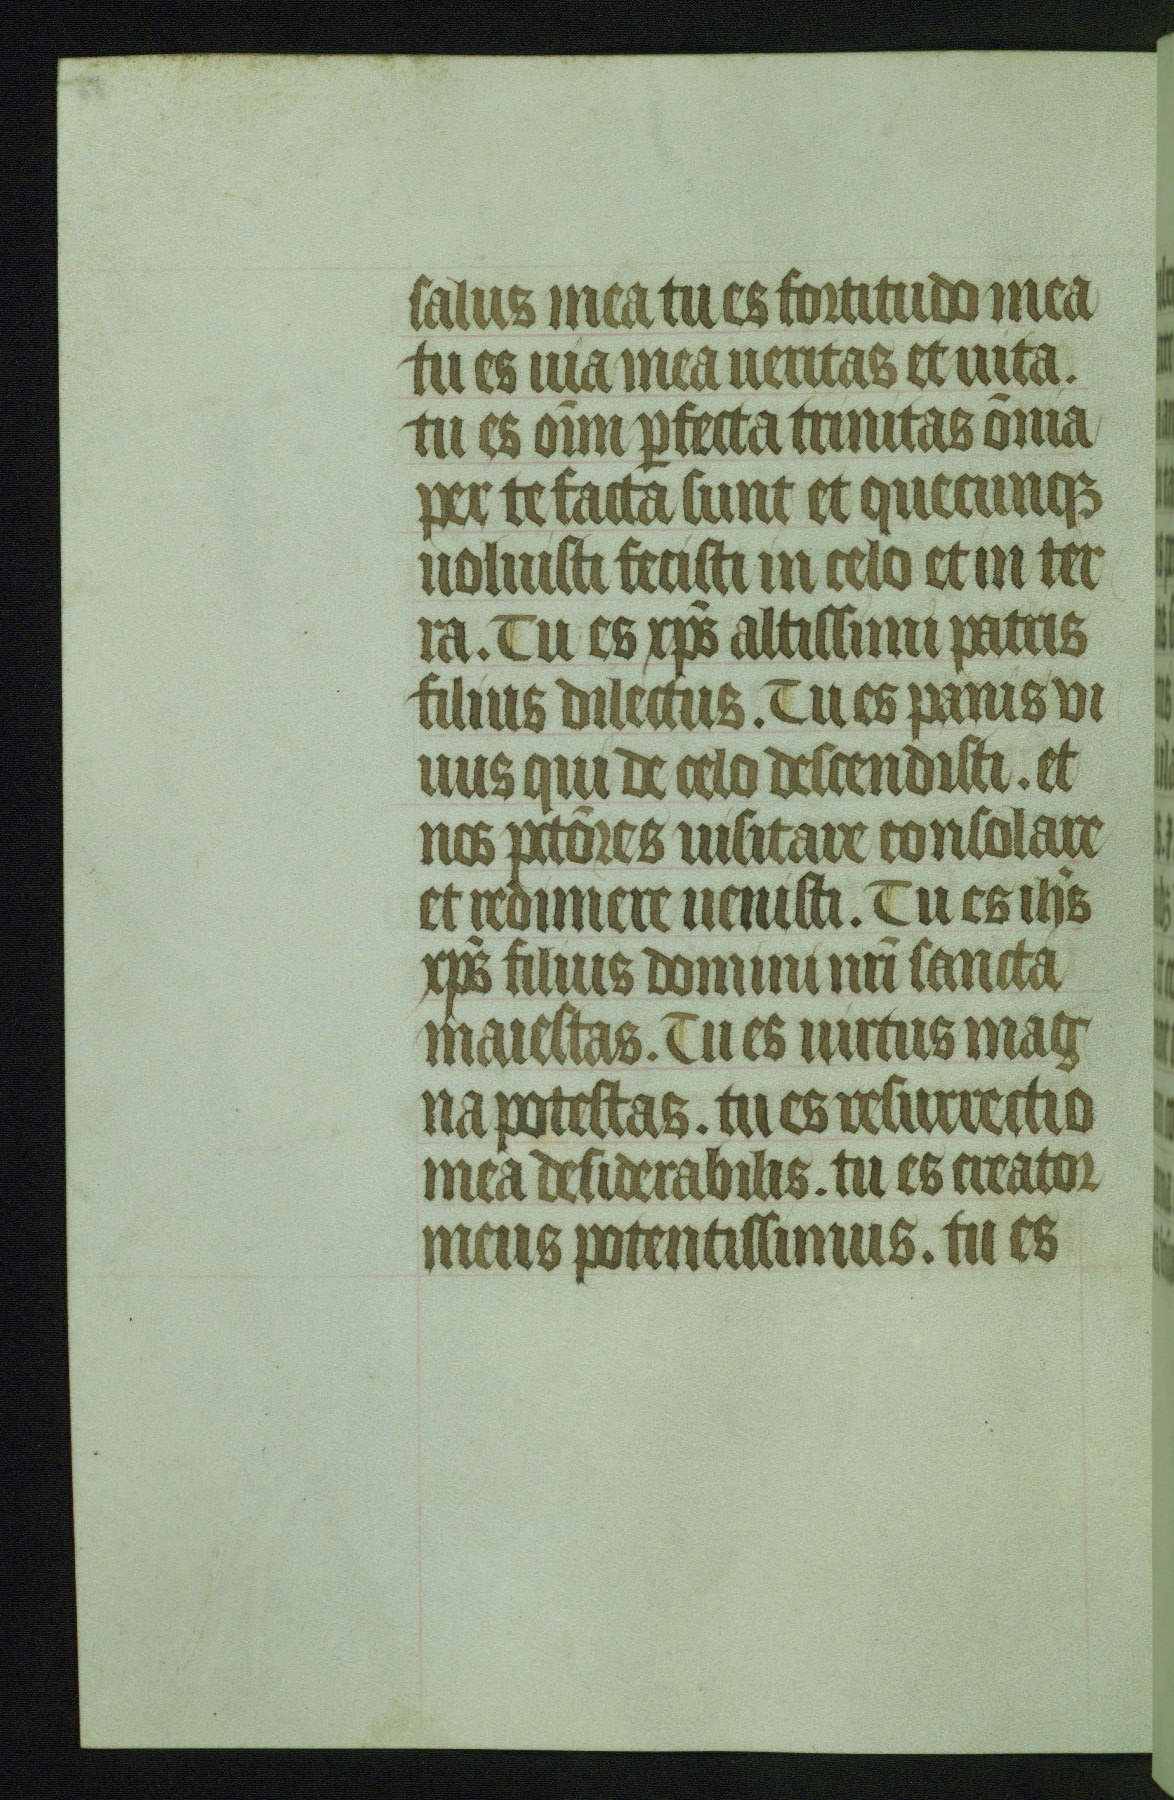 salus mea tu es fortitudo mea
tu es uia mea ueritas et uita.
tu es oīm ꝑfecta trinitas ōnia
per te facta sunt et quecunqꝫ
uoluisti fecisti in celo et in ter
ra. Tu es xp̄s altissimi patris
filius dilectus. Tu es panis vi
uus qui de celo descendisti. et
nos pctōres uisitare consolare
et redimere uenisti. Tu es ih̄s
xp̄s filius domini nr̄i sancta
maiestas. Tu es uirtus mag
na potestas. tu es resurrectio
mea desiderabilis. tu es creator
meus potentissimus. tu es